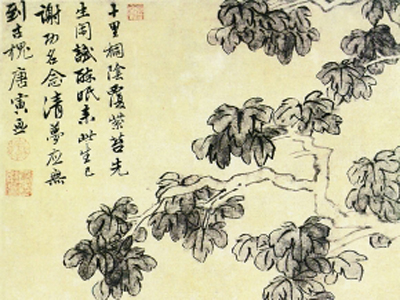 十里桐陰覆紫苔先
生閒試醉眠來此生已
謝功名念清夢應無
到古槐唐寅画